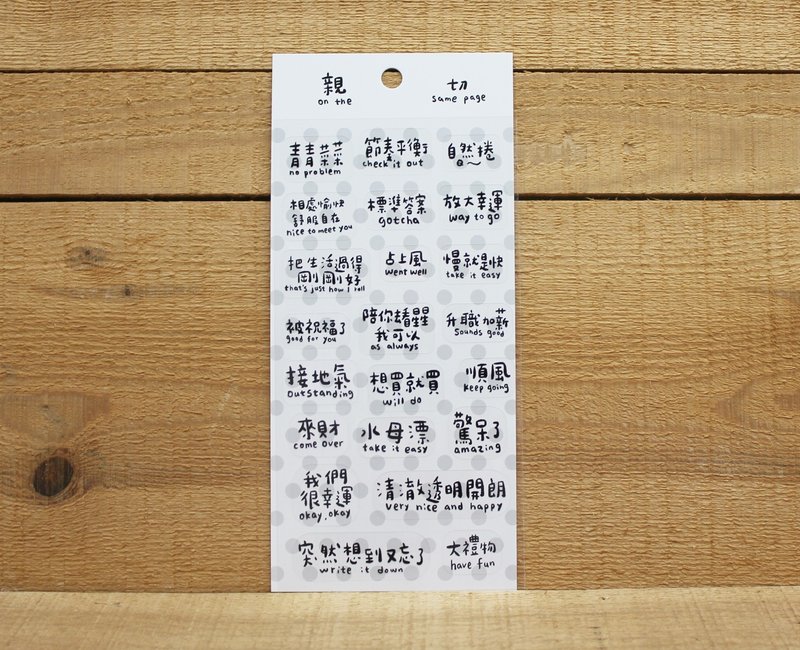 親 切
on the same page
青青菜菜
no problem
節奏平衡
check it out
自然捲
相處愉快
舒服自在
nice to meet you
標準答案
gotcha
放大幸運
way to go
把生活過得
剛剛好
that's just how I roll
占上風
went well
慢就是快
take it easy
被祝福了
good for you
陪你去看星星
我可以
as always
升職加薪
Sounds good
接地氣
outstanding
想買就買
will do
順風
keep going
來財
come over
水母漂
take it easy
驚呆了
amazing
我們
很幸運
okay, okay
清澈透明開朗
very nice and happy
突然想到又忘了
write it down
大禮物
have fun